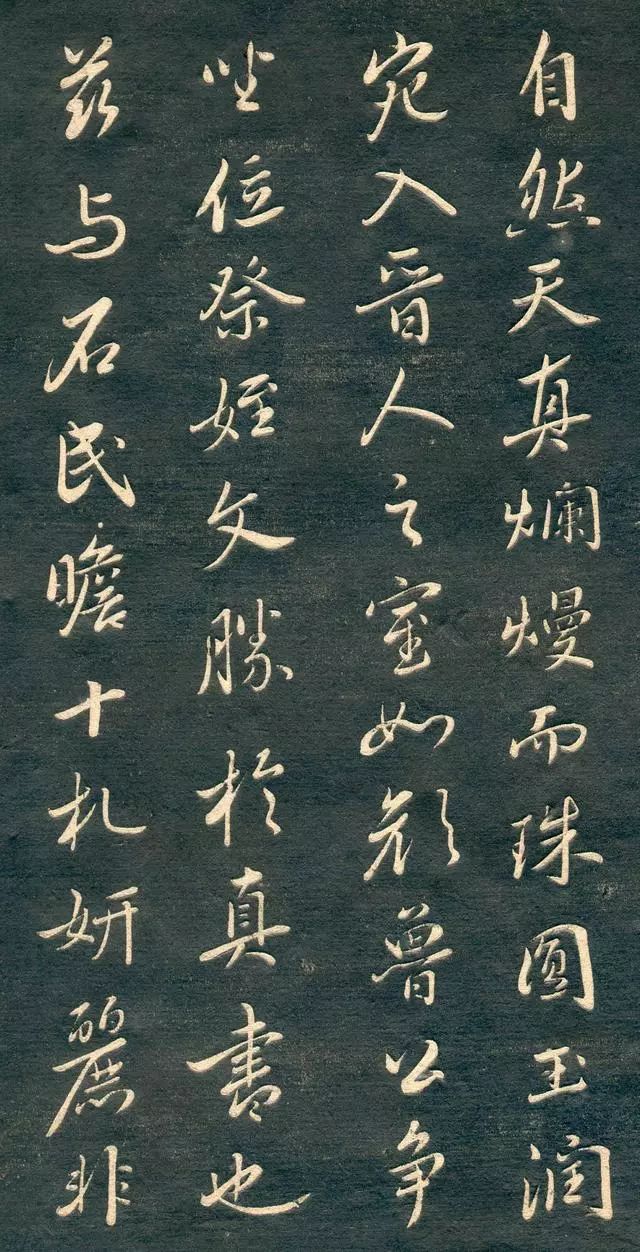 自然天真爛熳而珠圓玉润
宛入晉人之室如颜魯公争
坐位祭姪文勝於真書也
兹与石民瞻十札妍麗非